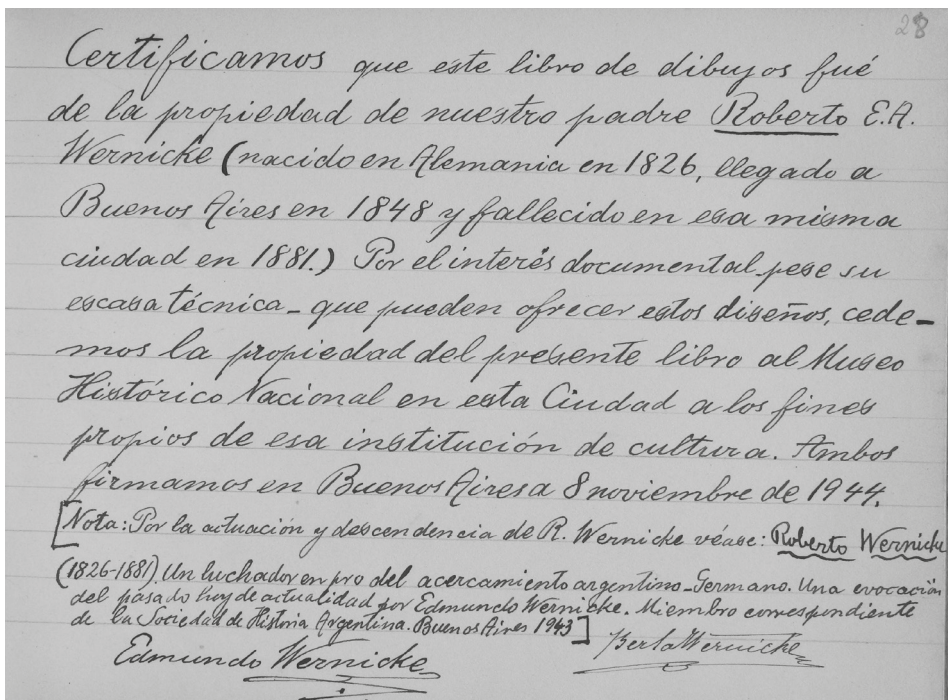 28
Certificamos que este libro de dibujos fué
de la propiedad de nuestro padre Roberto E.A.
Wernicke (nacido en Alemania en 1826, llegado a
Buenos Aires en 1848 y fallecido en esa misma
ciudad en 1881.) Por el interés documental pese su
escasa técnica - que pueden ofrecer estos diseños, cede-
mos la propiedad del presente libro al Museo
Histórico Nacional en esta Ciudad a los fines
propios de esa institución de cultura. Ambos
firmamos en Buenos Aires a 8 noviembre de 1944.
[Nota: Por la actuación y descendencia de R. Wernicke véase: Roberto Wernicke
(1826-1881) Un luchador en pro del acercamiento argentino-Germano. Una evocación
del pasado hoy de actualidad por Edmundo Wernicke. Miembro correspondiente
de la Sociedad de Historia Argentina. Buenos Aires 1943]
Edmundo Wernicke Berta Wernicke